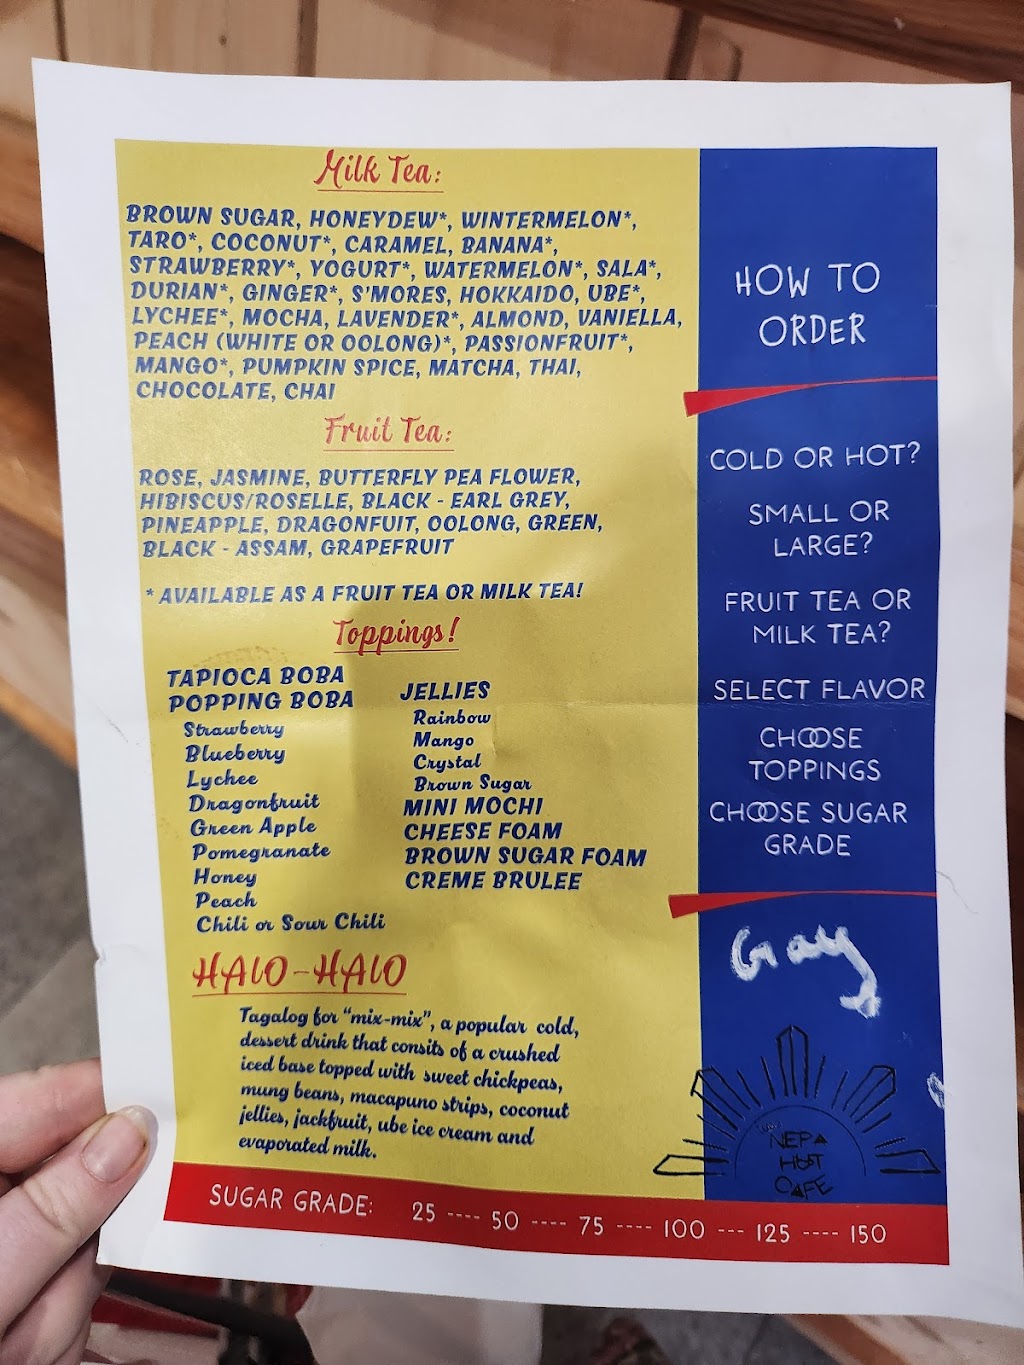 Milk Tea:
BROWN SUGAR, HONEYDEW*, WINTERMELON*,
TARO*, COCONUT*, CARAMEL, BANANA*,
STRAWBERRY*, YOGURT*, WATERMELON*, SALA*,
DURIAN*, GINGER*, S'MORES, HOKKAIDO, UBE*,
LYCHEE*, MOCHA, LAVENDER*, ALMOND, VANIELLA,
PEACH (WHITE OR OOLONG)*, PASSIONFRUIT*,
MANGO*, PUMPKIN SPICE, MATCHA, THAI,
CHOCOLATE, CHAI
Fruit Tea:
ROSE, JASMINE, BUTTERFLY PEA FLOWER,
HIBISCUS/ROSELLE, BLACK - EARL GREY,
PINEAPPLE, DRAGONFUIT, OOLONG, GREEN,
BLACK - ASSAM, GRAPEFRUIT
* AVAILABLE AS A FRUIT TEA OR MILK TEA!
Toppings!
TAPIOCA BOBA
POPPING BOBA
Strawberry
Blueberry
Lychee
Dragonfruit
Green Apple
Pomegranate
Honey
Peach
Chili or Sour Chili
JELLIES
Rainbow
Mango
Crystal
Brown Sugar
MINI MOCHI
CHEESE FOAM
BROWN SUGAR FOAM
CREME BRULEE
HALO-HALO
Tagalog for "mix-mix", a popular cold,
dessert drink that consits of a crushed
iced base topped with sweet chickpeas,
mung beans, macapuno strips, coconut
jellies, jackfruit, ube ice cream and
evaporated milk.
HOW TO
ORDER
COLD OR HOT?
SMALL OR
LARGE?
FRUIT TEA OR
MILK TEA?
SELECT FLAVOR
CHOOSE
TOPPINGS
CHOOSE SUGAR
GRADE
Gray
NEPA
HUT
CAFE
SUGAR GRADE: 25 ---- 50 ---- 75 ---- 100 --- 125 ---- 150